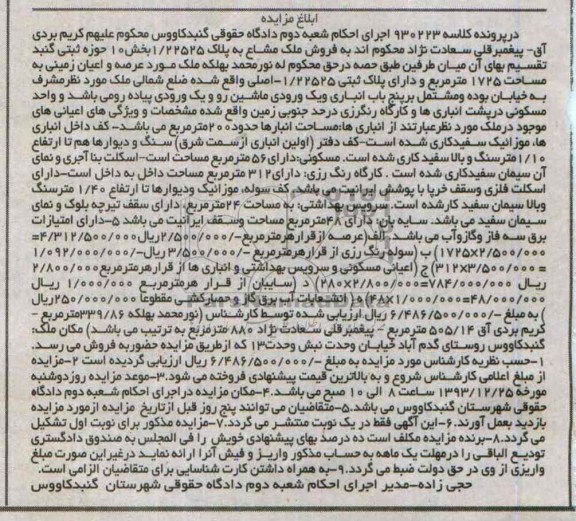 ابلاغ مزایده
درپرونده کلاسه ۹۳۰۲۲۳ اجرای احکام شعبه دوم دادگاه حقوقی گنبدکاووس محکوم علیهم کریم بردی
آق- پیغمبرقلی سعادت نژاد محکوم اند به فروش ملک مشاع به پلاک ۱/۲۲۵۲۵بخش۱۰ حوزه ثبتی گنبد
تقسیم بهای آن میان طرفین طبق حصه درحق محکوم له نورمحمد بهلکه ملک مورد عرصه و اعیان زمینی به
مساحت ۱۷۲۵ مترمربع و دارای پلاک ثبتی ۱/۲۲۵۲۵-اصلی واقع شده ضلع شمالی ملک مورد نظرمشرف
به خیابان بوده ومشتمل برپنج باب انباری ویک ورودی ماشین رو و یک ورودی پیاده رومی باشد و واحد
مسکونی درپشت انباری ها و کارگاه رنگرزی درحد جنوبی زمین واقع شده مشخصات و ویژگی های اعیانی های
موجود درملک مورد نظرعبارتند از انباری ها:مساحت انبارها حدوده ۲۰مترمربع می باشد- کف داخل انباری
ها، موزائیک سفیدکاری شده است-کف دفتر (اولین انباری ازسمت شرق) سنگ و دیوارها هم تا ارتفاع
۱/۱۰مترسنگ و بالا سفید کاری شده است. مسکونی:دارای۵۶ مترمربع مساحت است-اسکلت بنا آجری و نمای
آن سیمان سفیدکاری شده است . کارگاه رنگ رزی: دارای۳۱۲ مترمربع مساحت داخل به داخل است-دارای
اسکلت فلزی وسقف خرپا با پوشش ایرانیت می باشد. کف سوله، موزائیک ودیوارها تا ارتفاع ۱/۴۰ مترسنگ
وبالا سیمان سفید کارشده است. سرویس بهداشتی: به مساحت ۲۴مترمربع، دارای سقف تیرچه بلوک و نمای
سیمان سفید می باشد. سایه بان: دارای ۴۸مترمربع مساحت وسقف ایرانیت می باشد ۵-دارای امتیازات
برق سه فاز وگازوآب می باشد. الف(عرصه ازقرارهرمترمربع-/۲/۵۰۰/۰۰۰ریال۴/۳۱۲/۵۰۰/۰۰۰=
۱۷۲۵×۲/۵۰۰/۰۰۰) ب (سوله رنگ رزی از قرارهرمترمربع -/۳/۵۰۰/۰۰۰ریال-/۱/۰۹۲/۰۰۰/۰۰۰
= ۳۱۲×۳/۵۰۰/۰۰۰) ج (اعیانی مسکونی و سرویس بهداشتی و انباری ها از قرارهرمترمربع۲/۸۰۰/۰۰۰
ریال ۷۸۴/۰۰۰/۰۰۰=۲۸۰×۲/۸۰۰/۰۰۰) د (سایبان) از قرار هرمترمربع ۱/۰۰۰/۰۰۰ ریال
۴۸/۰۰۰/۰۰۰=۴۸×۱/۰۰۰/۰۰۰) ه( انشعابات آب برق گاز و حصارکشی مقطوعا ۲۵۰/۰۰۰/۰۰۰ریال
) به مبلغ -/۶/۴۸۶/۵۰۰/۰۰۰ ریال ارزیابی شده توسط کارشناس (نورمحمد بهلکه ۳۳۹/۸۶مترمربع -
کریم بردی آق ۵۰۵/۱۴ مترمربع - پیغمبرقلی سعادت نژاد ۸۸۰ مترمربع به ترتیب می باشد) مکان ملک:
گنبدکاووس روستای گدم آباد خیابان وحدت نبش وحدت۱۳ که ازطریق مزایده حضوربه فروش می رسد.
۱-حسب نظریه کارشناس مورد مزایده به مبلغ -/۶/۴۸۶/۵۰۰/۰۰۰ ریال ارزیابی گردیده است ۲-مزایده
از مبلغ اعلامی کارشناس شروع و به بالاترین قیمت پیشنهادی فروخته می شود.۳-موعد مزایده روزدوشنبه
مورخه ۱۳۹۳/۱۲/۲۵ ساعت ۸ الی ۱۰ صبح می باشد.۴-مکان مزایده دراجرای احکام شعبه دوم دادگاه
حقوقی شهرستان گنبدکاووس می باشد.۵-متقاضیان می توانند پنج روز قبل ازتاریخ مزایده ازمورد مزایده
بازدید بعمل آورند.۶-این آگهی فقط در یک نوبت منتشر می گردد.۷-مزایده مذکور برای نوبت اول تشکیل
می گردد.۸-برنده مزایده مکلف است ده درصد بهای پیشنهادی خویش را فی المجلس به صندوق دادگستری
تودیع الباقی را درمهلت یک ماهه به حساب مذکور واریز و فیش آنرا ارائه نماید درغیراین صورت مبلغ
واریزی از وی در حق دولت ضبط می گردد.۹-به همراه داشتن کارت شناسایی برای متقاضیان الزامی است.
حجی زاده-مدیر اجرای احکام شعبه دوم دادگاه حقوقی شهرستان گنبدکاووس